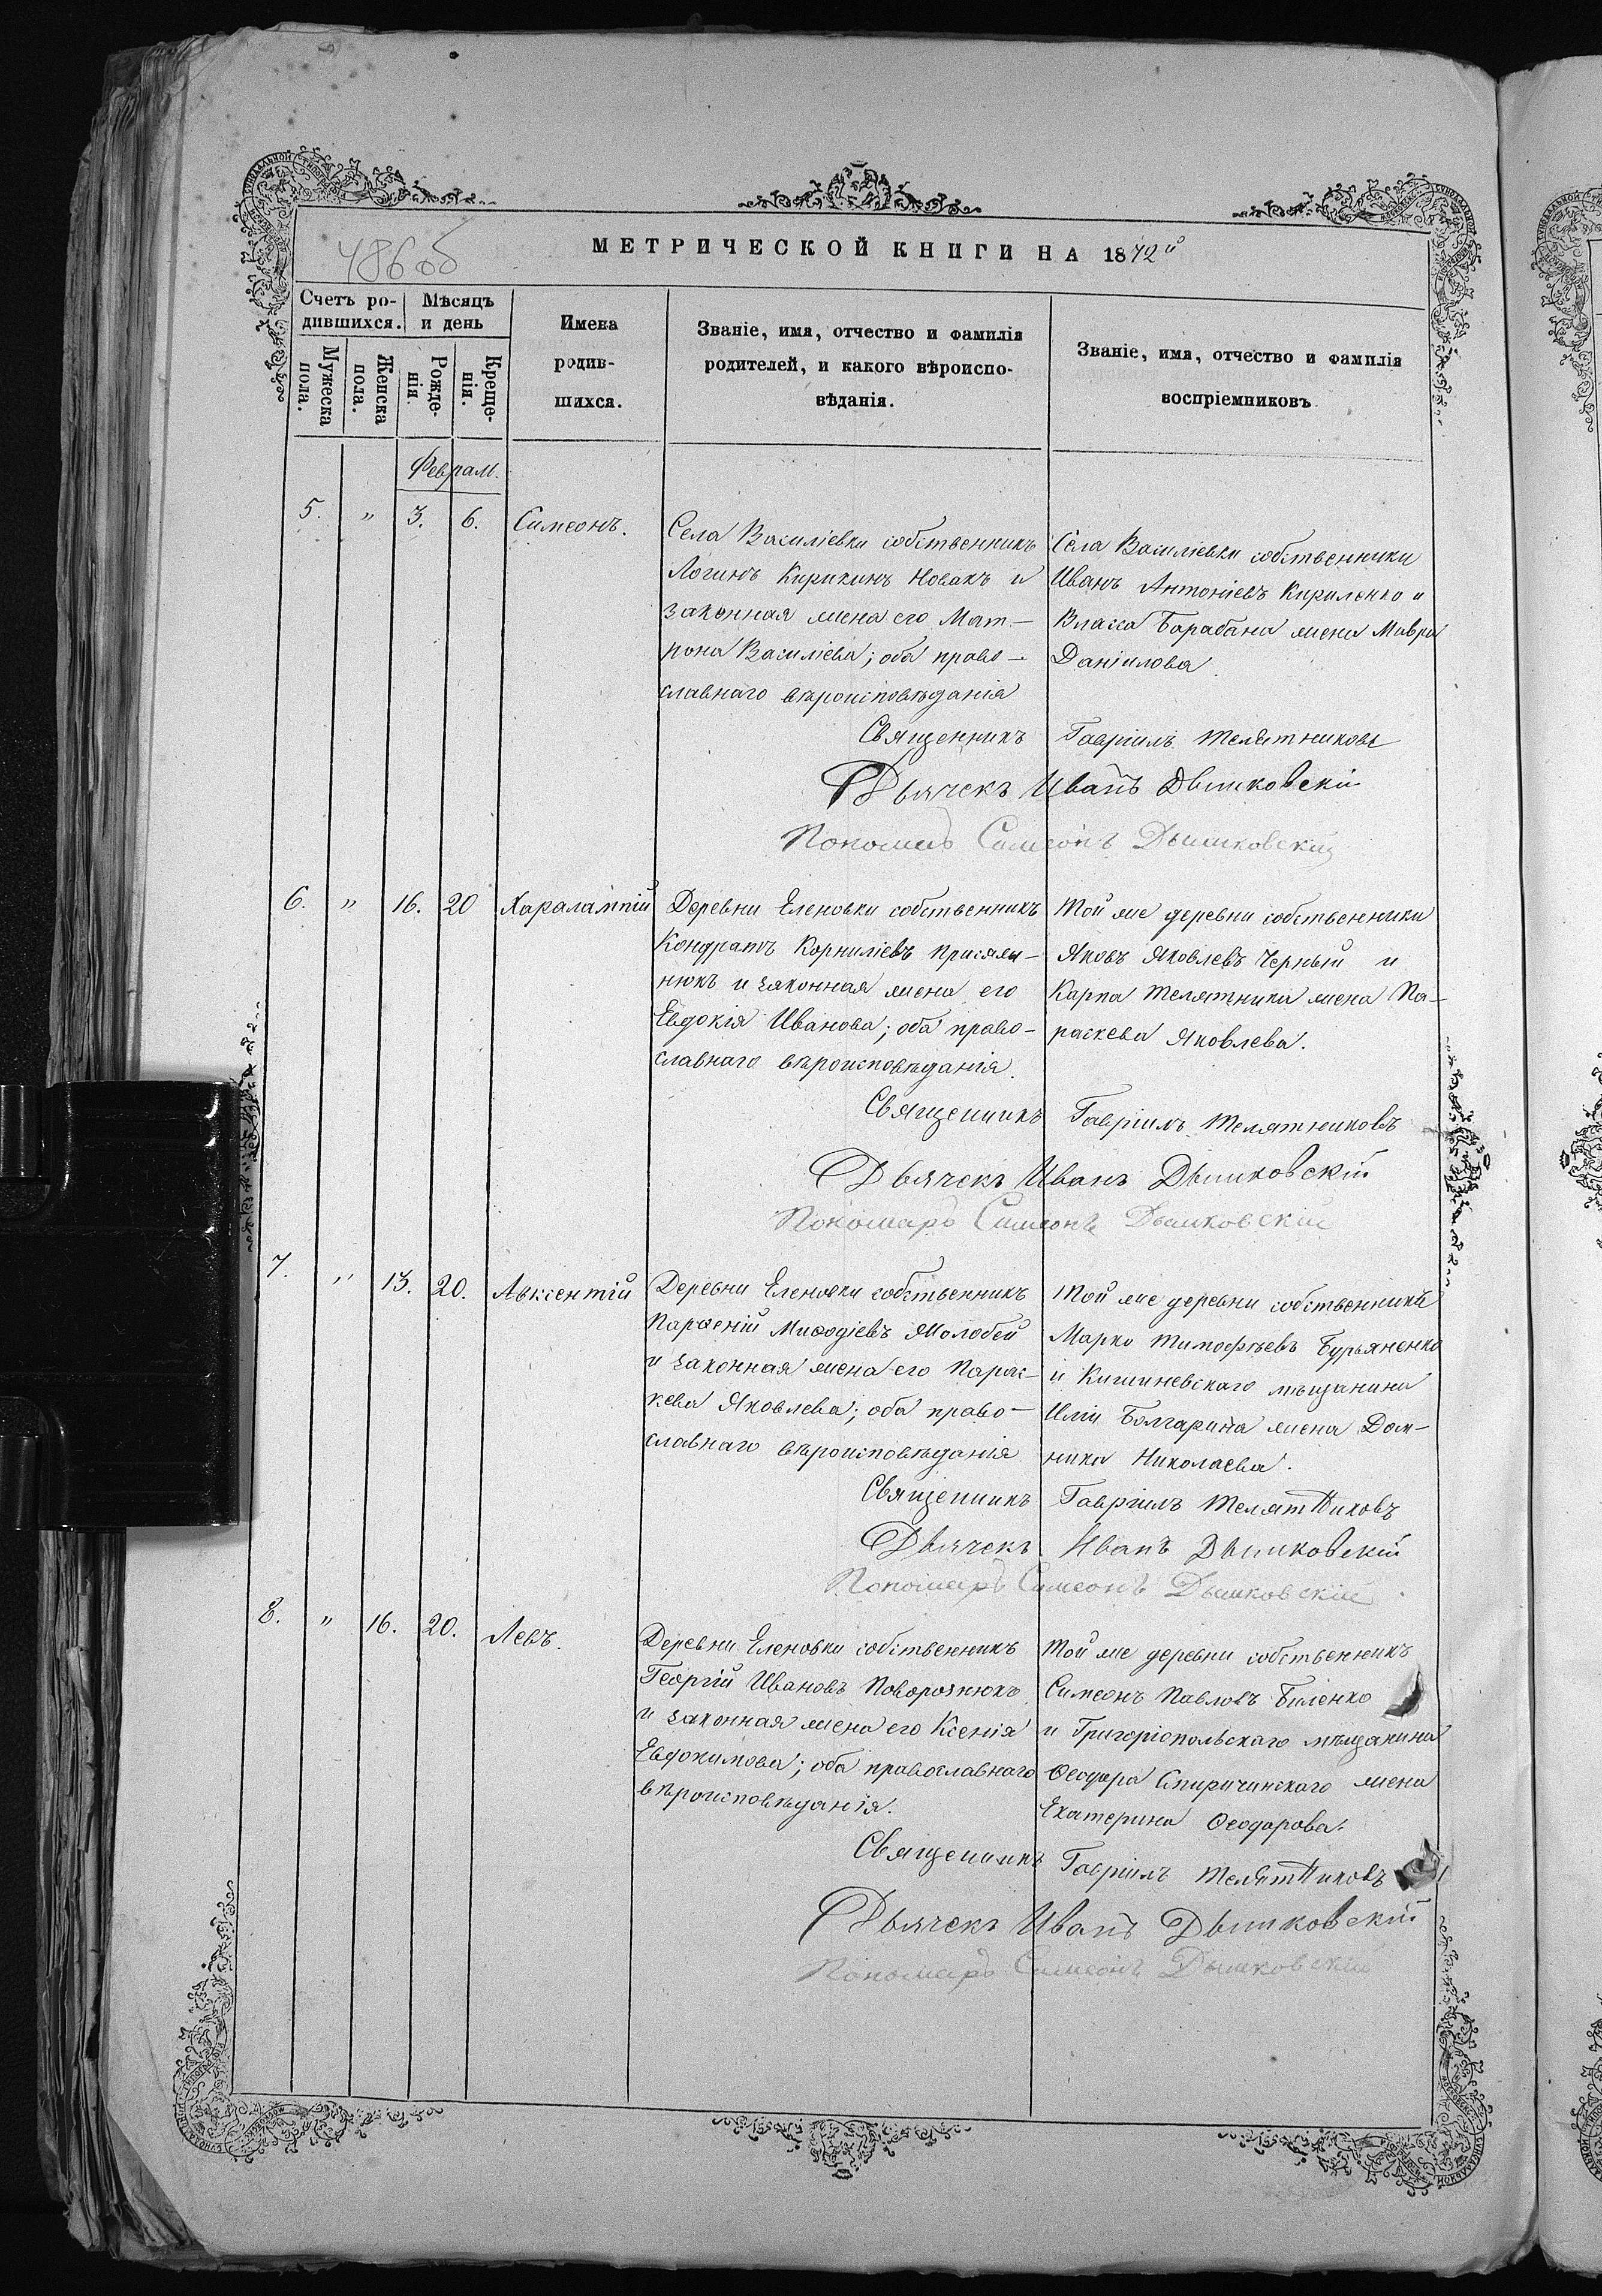 486 об
МЕТРИЧЕСКОЙ КНИГИ НА 1872й
Счетъ ро-
дившихся.
Мѣсяцъ
и день
Мужеска
пола.
Женска
пола.
Рожде-
нія.
Креще-
нія.
Имена
родив-
шихся.
Званіе, имя, отчество и фамилія
родителей, и какого вѣроиспо-
вѣданія.
Званіе, имя, отчество и фамилія
воспріемниковъ
Феврал.
5. " 3. 6. Симеонъ.
Села Василіевки собственникъ
Логинъ Кирикинъ Новакъ и
законная жена его Мат-
рона Василіева; оба право-
славнаго вѣроисповѣданія
Села Василіевки собственники
Иванъ Антоніевъ Кириленко и
Власса Барабана жена Мавра
Даніилова.
Священникъ Гавріилъ Телятниковъ
Дьячекъ Иванъ Дьмковскій
Пономарь Симеонъ Дьмковскій
6. " 16. 20 Харалампій
Деревни Еленовки собственникъ
Кондратъ Корниліевъ Присяж-
нюкъ и законная жена его
Евдокія Иванова; оба право-
славнаго вѣроисповѣданія.
Той же деревни собственники
Яковъ Яковлевъ Черный и
Карпа Телятника жена Па-
раскева Яковлева.
Священникъ Гавріилъ Телятниковъ
Дьячекъ Иванъ Дьмковскій
Пономарь Симеонъ Дьмковскій
7. " 13. 20. Авксентій
Деревни Еленовки собственникъ
Парѳеній Миѳодіевъ Молобей
и законная жена его Парас-
кева Яковлева; оба право-
славнаго вѣроисповѣданія
Той же деревни собственникъ
Марко Тимофѣевъ Бурьяненко
и Кишиневскаго мѣщанина
Иліи Болгарина жена Дом-
ника Николаева.
Священникъ Гавріилъ Телятниковъ
Дьячекъ Иванъ Дьмковскій
Пономарь Симеонъ Дьмковскій
8. " 16. 20. Левъ.
Деревни Еленовки собственникъ
Георгій Ивановъ Поворознюкъ
и законная жена его Ксенія
Евдокимова; оба православнаго
вѣроисповѣданія.
Той же деревни собственникъ
Симеонъ Павловъ Биленко
и Григоріопольскаго мѣщанина
Ѳеодора Спиричинскаго жена
Екатерина Ѳеодорова.
Священникъ Гавріилъ Телятниковъ
Дьячекъ Иванъ Дьмковскій
Пономарь Симеонъ Дьмковскій